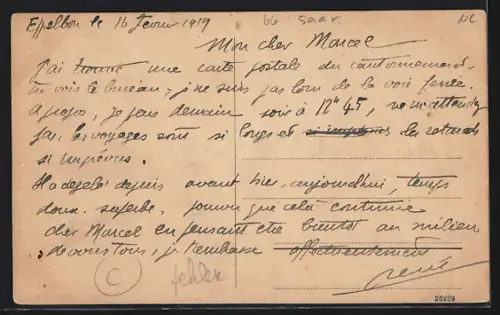 Eppelborn le 16 février 1919
66 Saar
NL
Mon cher Marcel
J'ai trouvé une carte postale du cantonnement.
tu vois le bureau, je ne suis pas loin de la voie ferrée.
A propos, je pars demain soir à 17h 45, ne m'attendez
pas, les voyages sont si longs et les retards
si imprévus.
Il a dégelé depuis avant hier, aujourdhui, temps
doux, superbe, pourvu que cela continue
cher Marcel en pensant être bientôt au milieu
de vous tous, je t'embrasse affectueusement
René
C
fehler
28939